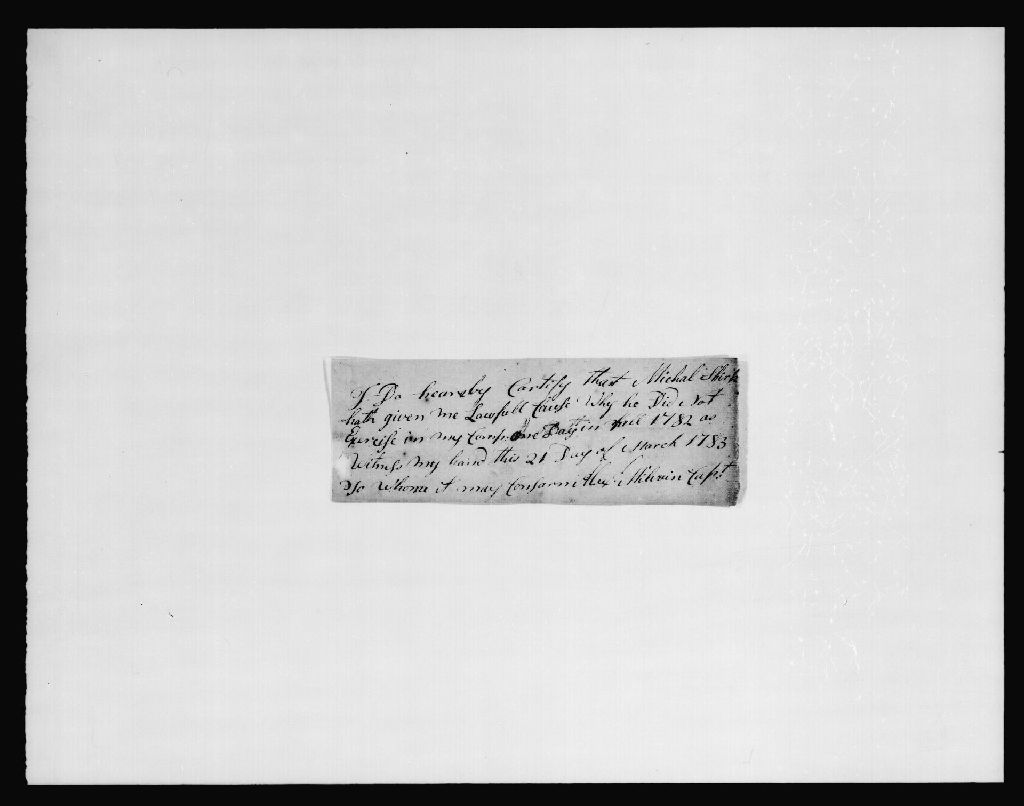 I Do heareby Cartify that Michal Shirk
hath given me Lawfull Cause Why he Did Not
Exercise in my Comp. one Day in 1782 as
Witness my hand this 21 Day of March 1783
To Whome it may Consarn Alex Capt